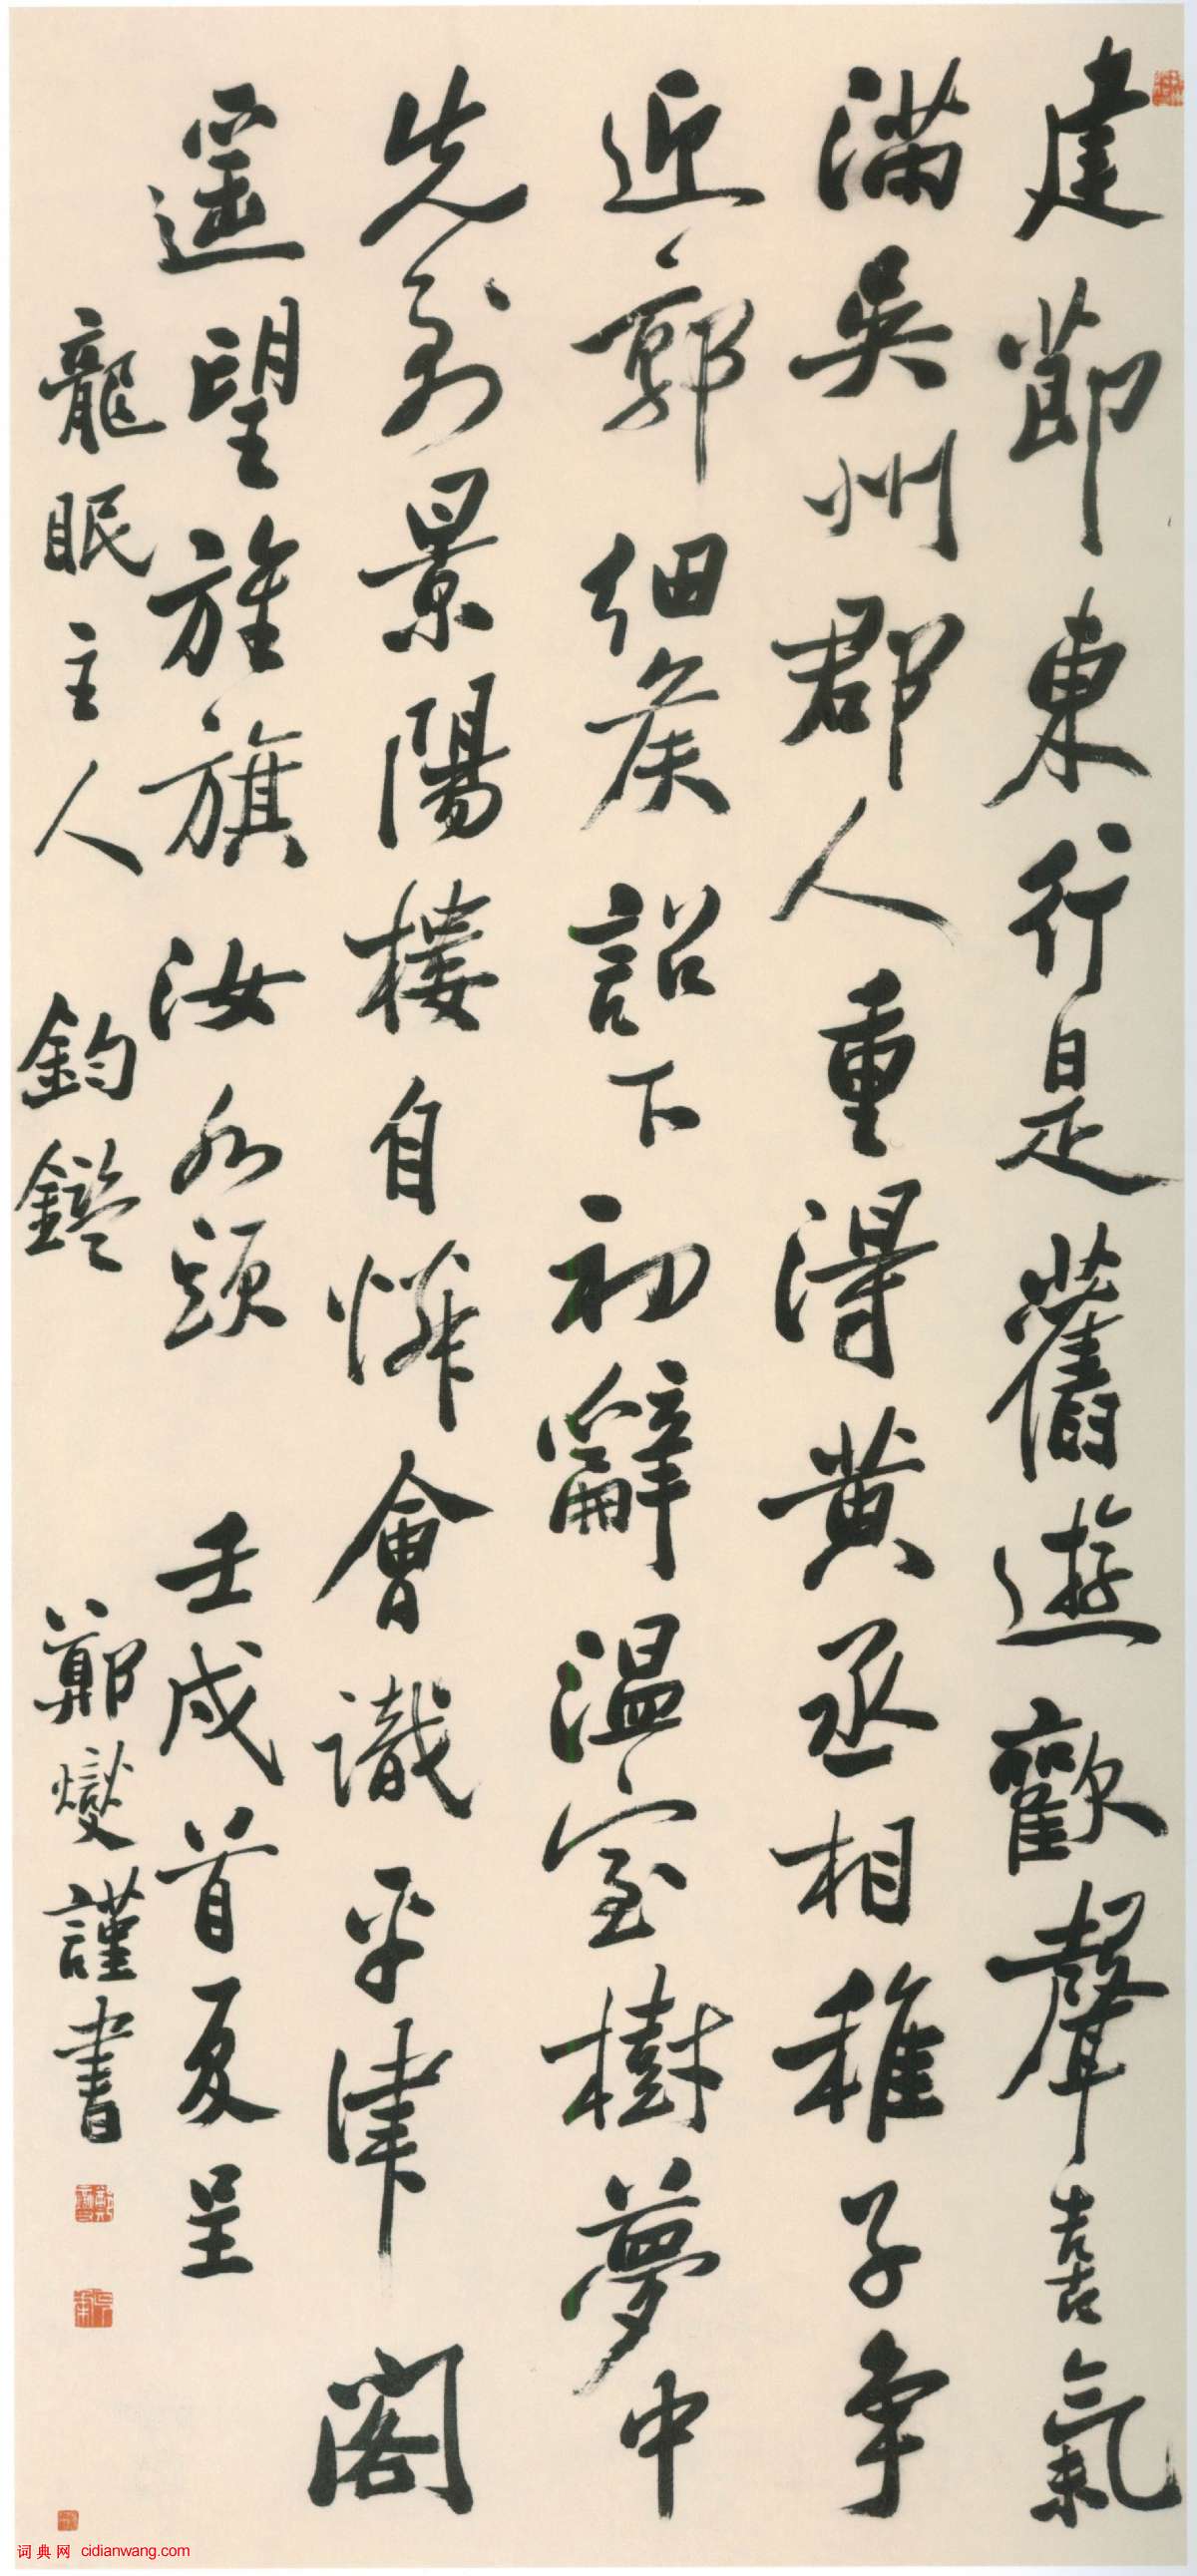 建節東行是舊遊歡聲喜氣
滿吳州郡人重得黃丞相稚子争
迎郭細侯詔下初辭温室樹夢中
先到景陽樓自憐會識平津閣
遥望旌旗汝水頭 壬戌首夏呈
龍眠主人 鈞鑑 鄭燮謹書
词典网 cidianwang.com